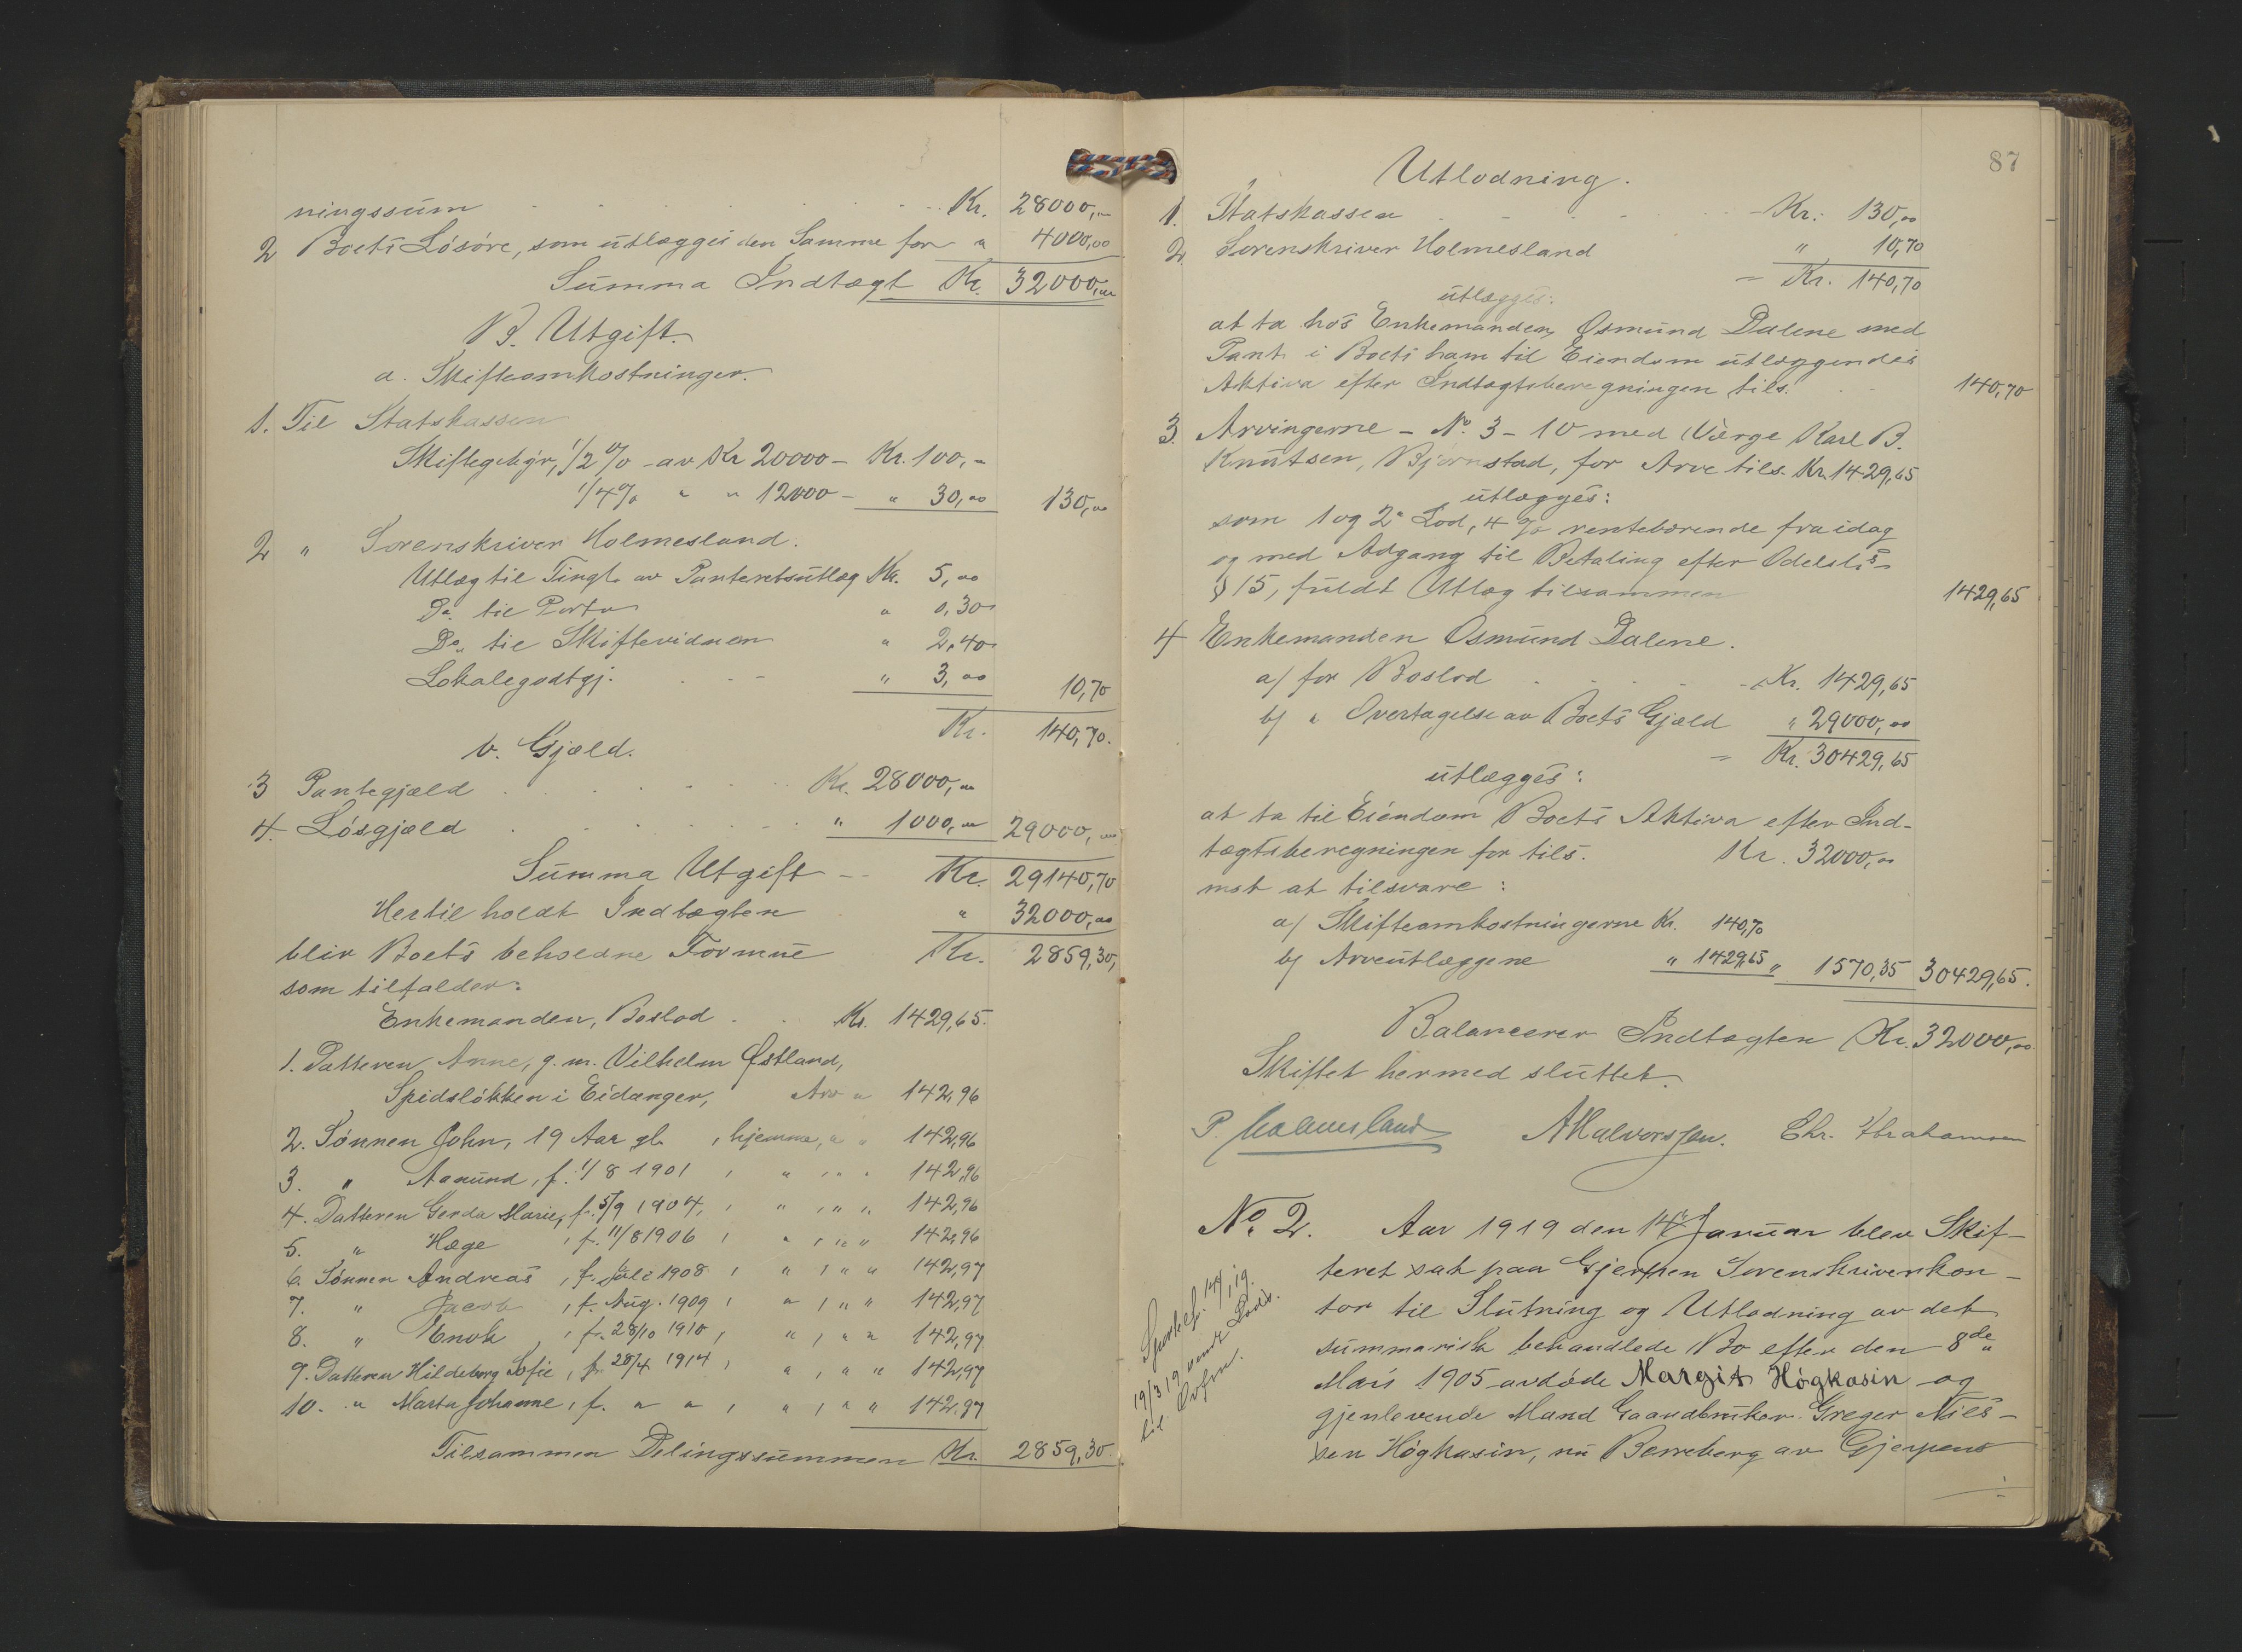 ningssum . . . . . . . Kr. 28000,00
2 Boets Løsøre, som utlægges den Samme for " 4000,00
Summa Indtægt Kr. 32000,00
B. Utgift.
a. Skifteomkostninger.
1. Til Statskassen
Skiftegebyr, 1/2 % av Kr 20000 - Kr. 100,-
1/4 % " " 12000 - " 30,00 130,00
2 " Sorenskriver Holmesland.
Utlæg til Tingl. av Panteretsutlæg Kr. 5,00
Do. til Porto " 0,30
Do. til Skiftevidnen " 2,40
Lokalegodtgj. . . - " 3,00 10,70
Kr. 140,70.
b. Gjæld.
3 Pantegjæld . . . . . Kr. 28000,00
4. Løsgjæld . . . . . " 1000,00 29000,00
Summa Utgift - Kr. 29140,70
Hertil holdt Indtægten " 32000,00
blir Boets beholdne Formue Kr. 2859,30,
som tilfalder:
Enkemanden, Boslod . . Kr. 1429,65.
1. Datteren Anne, g. m. Vilhelm Østland,
Spidsløkken i Eidanger, Arv " 142,96
2. Sønnen John, 19 Aar gl. , hjemme, " " 142,96
3. " Aanund, f. 1/8 1901 , " , " " 142,96
4. Datteren Gerda Marie, f. 5/9 1904, , " , " " 142,96
5. " Hæge , f. 11/8 1906 , " , " " 142,96
6. Sønnen Andreas , f. Juli 1908 , " , " " 142,97
7. " Jacob , f. Aug. 1909 , " , " " 142,97
8. " Enok , f. 28/10 1910 , " , " " 142,97
9. Datteren Hildeborg Sofie , f. 28/4 1914 , " , " " 142,97
10. " Marta Johanne , f. " " , " , " " 142,97
Tilsammen Delingssummen Kr. 2859,30.
87
Utlodning.
1. Statskassen . . . . - Kr. 130,00
2. Sorenskriver Holmesland " 10,70
- Kr. 140,70
utlægges:
at ta hos Enkemanden, Osmund Dalene med
Pant i Boets ham til Eiendom utlæggendes
Aktiva efter Indtægtsberegningen tils. . . 140,70
3. Arvingerne - No. 3 - 10 med Værge Karl B.
Knutsen, Bjørnstad, for Arv tils. Kr. 1429,65
utlægges:
som 1 og 2. Lod, 4 % rentebærende fra idag
og med Adgang til Betaling efter Odelsl.s
§ 15, fuldt Utlæg tilsammen 1429,65
4 Enkemanden Osmund Dalene.
a/ for Boslod . . . . - Kr. 1429,65
b/ " Overtagelse av Boets Gjæld " 29000,00
- Kr. 30429,65
utlægges:
at ta til Eiendom Boets Aktiva efter Ind-
tægtsberegningen for tils. Kr. 32000,00
mot at tilsvare:
a/ Skifteomkostningerne Kr. 140,70
b/ Arveutlæggene " 1429,65 " 1570,35 30429,65.
Balancerer Indtægten Kr. 32000,00.
Skiftet hermed sluttet.
P. Holmesland AHalvorsen. Chr. Abrahamsen
No. 2. Aar 1919 den 14. Januar blev Skif-
teret sat paa Gjerpen Sorenskriverkon-
tor til Slutning og Utlodning av det
summarisk behandlede Bo efter den 8de
Mars 1905 avdøde Margit Høgkasin og
gjenlevende Mand Gaardbruker Greger Niels-
sen Høgkasin, nu Berreberg av Gjerpens
14/1 19.
19/3 19 Lodd.
til